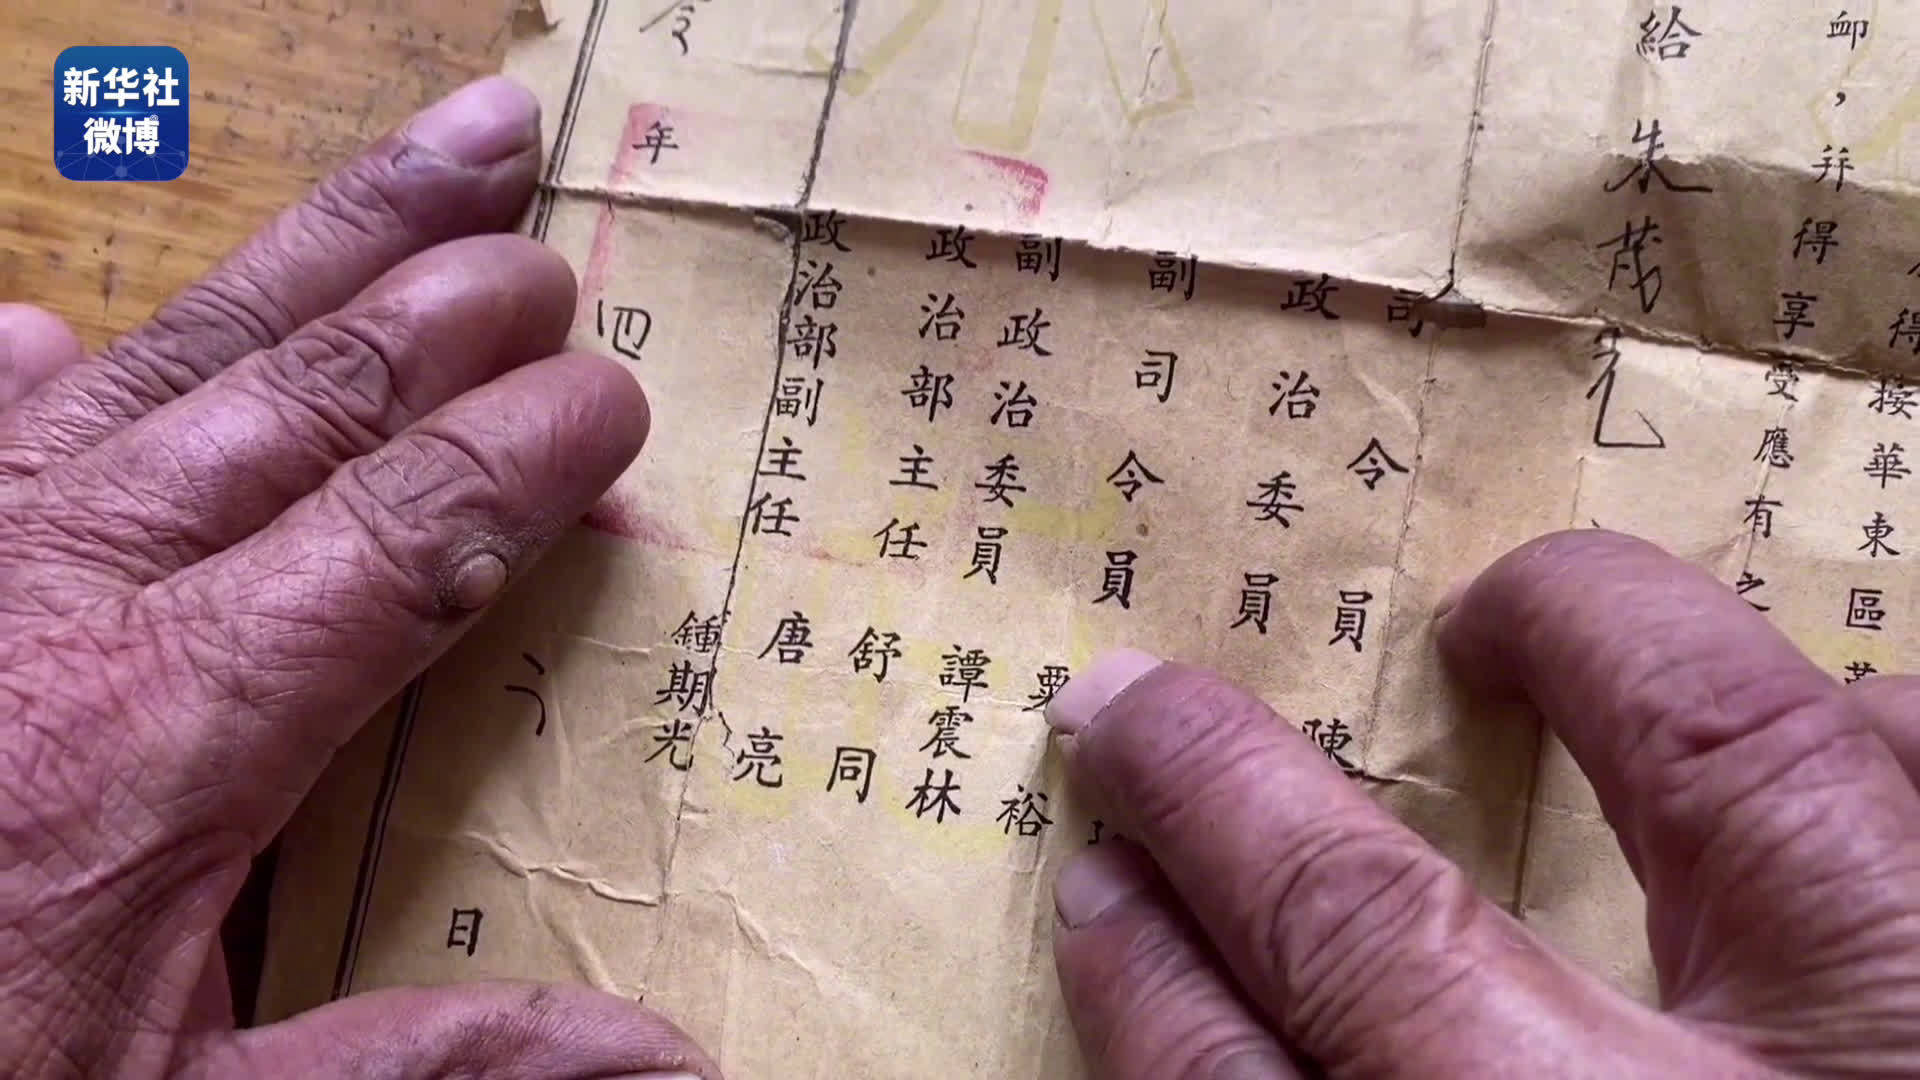 新华社
微博
卹，并得享受應有之
得
接華東區
給朱茂
司令員
政治委員 陳
副司令員
副政治委員 譚震林
政治部主任 舒同 唐亮
政治部副主任 鍾期光
粟裕
年四
日